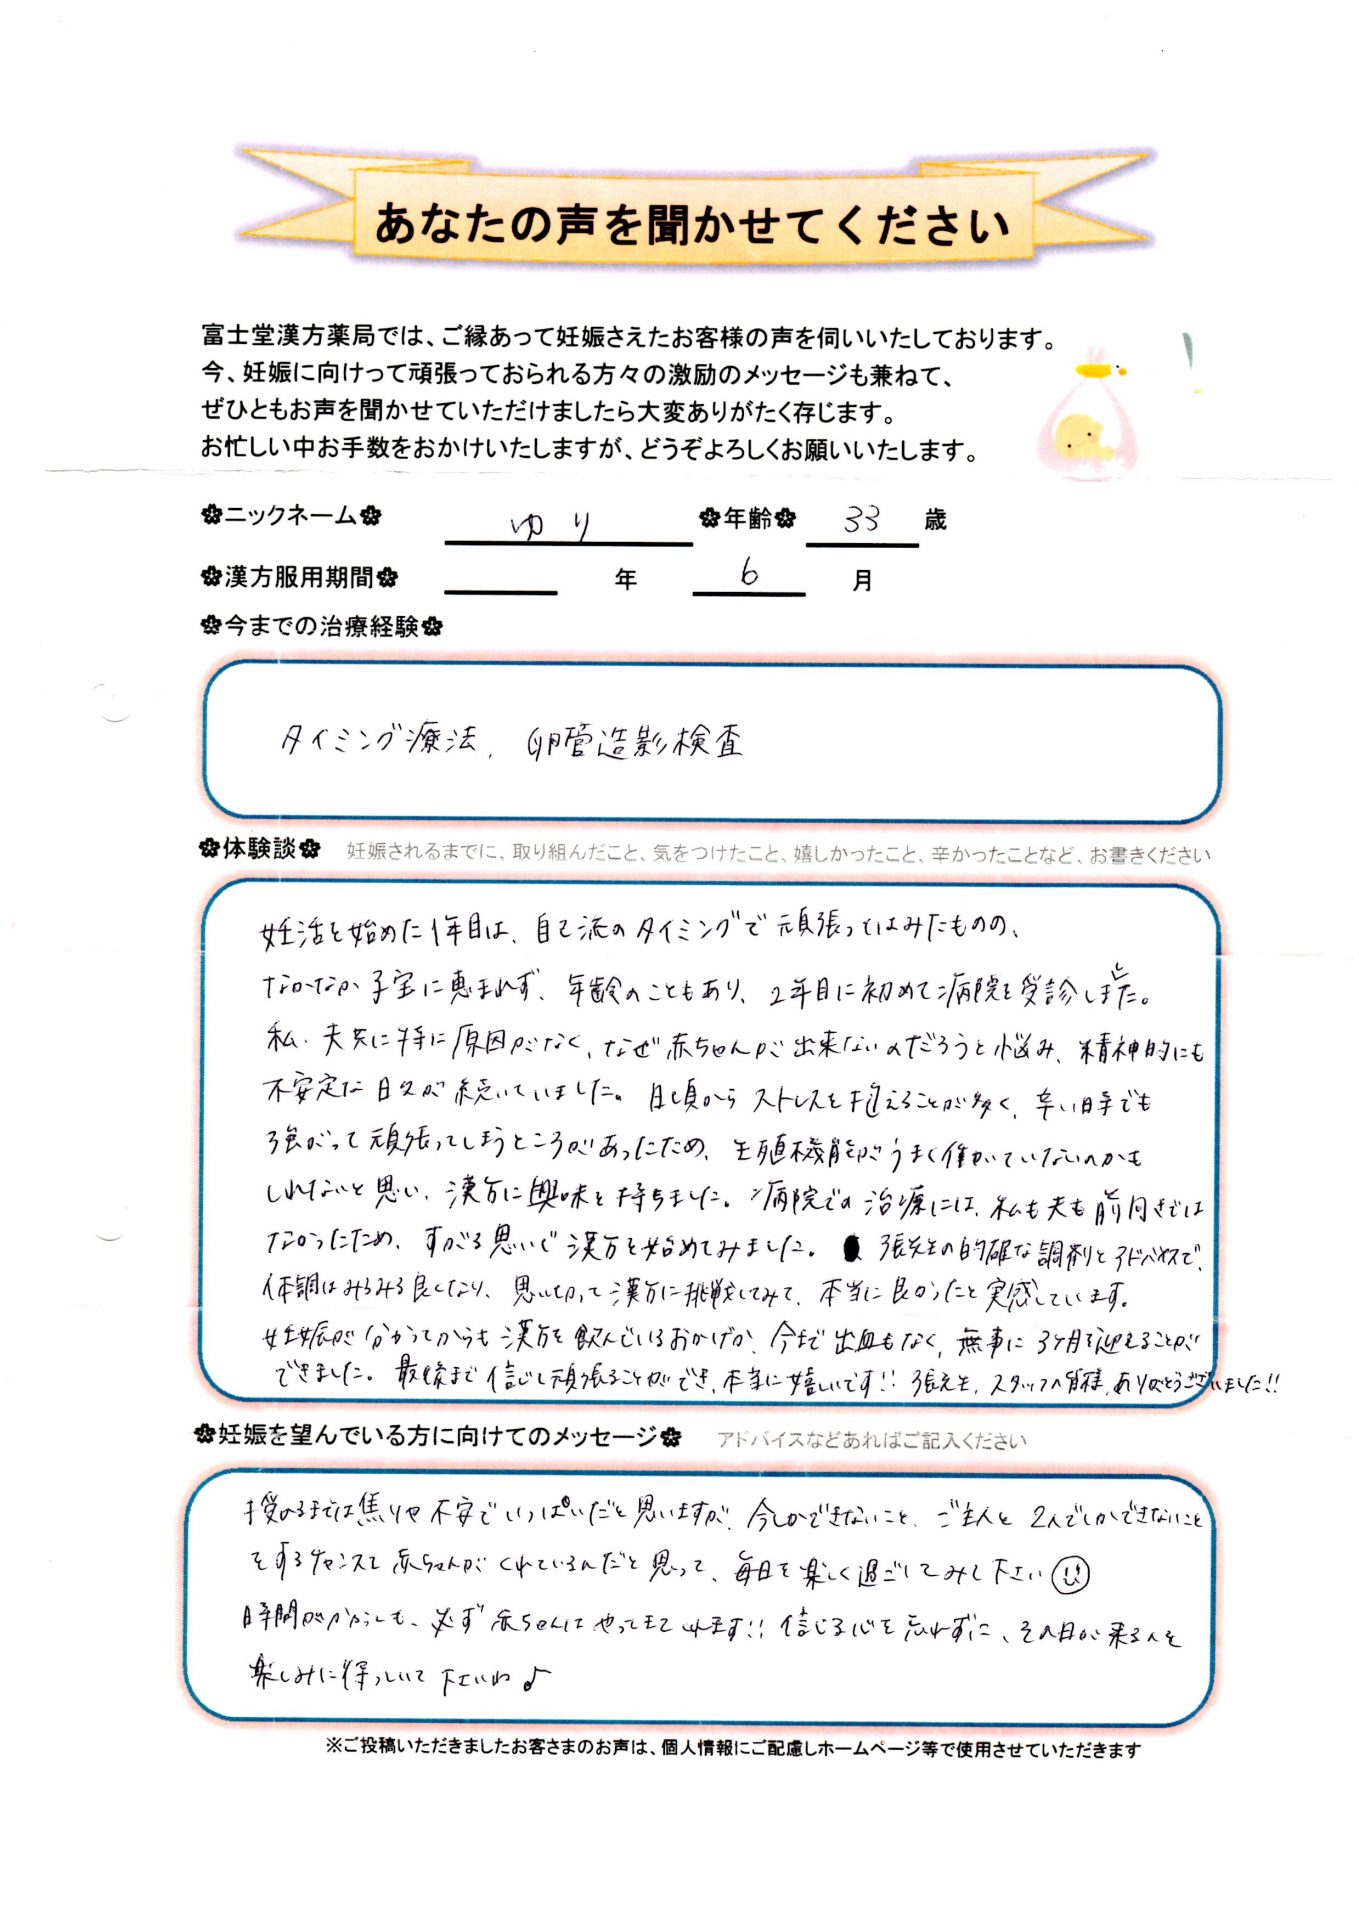 あなたの声を聞かせてください
富士堂漢方薬局では、ご縁あって妊娠さえたお客様の声を伺いいたしております。
今、妊娠に向けって頑張っておられる方々の激励のメッセージも兼ねて、
ぜひともお声を聞かせていただけましたら大変ありがたく存じます。
お忙しい中お手数をおかけいたしますが、どうぞよろしくお願いいたします。
✿ニックネーム✿ ゆり ✿年齢✿ 33 歳
✿漢方服用期間✿ 年 6 月
✿今までの治療経験✿
タイミング療法、卵管造影検査
✿体験談✿ 妊娠されるまでに、取り組んだこと、気をつけたこと、嬉しかったこと、辛かったことなど、お書きください
妊活を始めた1年目は、自己流のタイミングで頑張ってはみたものの、
なかなか子宝に恵まれず、年齢のこともあり、2年目に初めて病院を受診しました。
私・夫共に特に原因がなく、なぜ赤ちゃんが出来ないのだろうと悩み、精神的にも
不安定な日々が続いていました。日頃からストレスを抱えることが多く、辛い時でも
強がって頑張ってしまうところがあったため、生殖機能がうまく働いていないのかも
しれないと思い、漢方に興味を持ちました。病院での治療には、私も夫も前向きでは
なかったため、すがる思いで漢方を始めてみました。張先生の的確な調剤とアドバイスで、
体調はみるみる良くなり、思い切って漢方に挑戦してみて、本当に良かったと実感しています。
妊娠が分かってからも漢方を飲んでいるおかげか、今まで出血もなく、無事に3ヶ月を迎えることが
できました。最後まで信じて頑張ることができ、本当に嬉しいです!! 張先生、スタッフの皆様、ありがとうございました!!
✿妊娠を望んでいる方に向けてのメッセージ✿ アドバイスなどあればご記入ください
授かるまでは焦りや不安でいっぱいだと思いますが、今しかできないこと、ご主人と2人でしかできないこと
をするチャンスを赤ちゃんがくれているんだと思って、毎日を楽しく過ごしてみて下さい☺
時間がかかっても、必ず赤ちゃんはやってきてくれます!! 信じる心を忘れずに、その日が来るのを
楽しみに待っていて下さいね♪
※ご投稿いただきましたお客さまのお声は、個人情報にご配慮しホームページ等で使用させていただきます